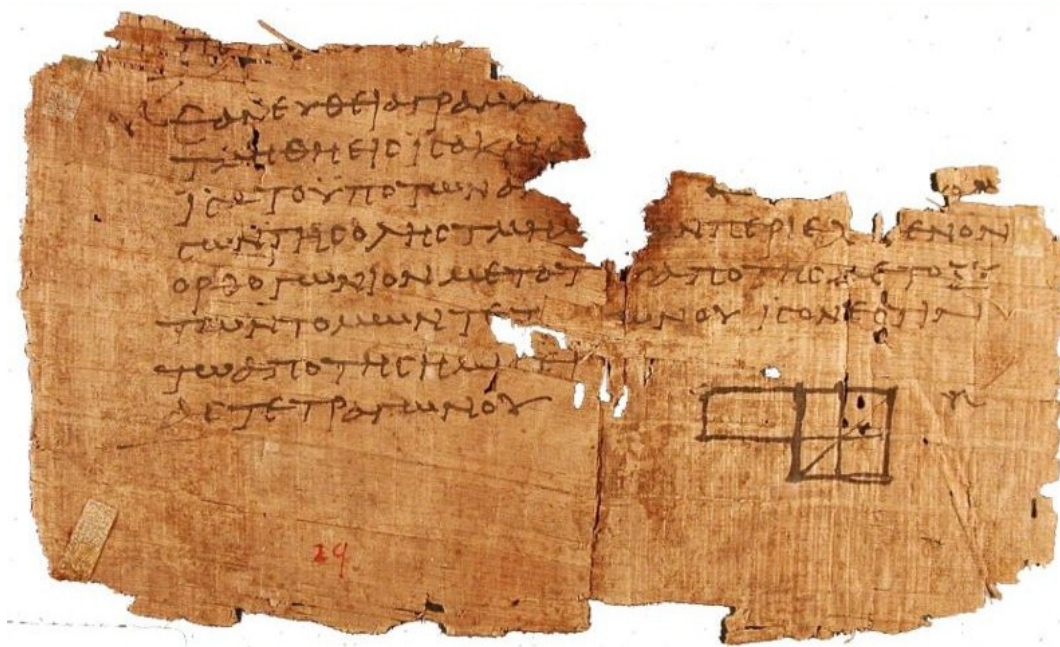 ΕΑΝ ΕΥΘΕΙΑ ΓΡΑΜΜ
ΤΜΗΘΗ ΕΙϹ ΙϹΑ Κ
ΙϹΑ ΤΟ ΥΠΟ ΤΩΝ Α
ϹΩΝ ΤΗϹ ΟΛΗϹ ΤΜΗΜ Ν ΠΕΡΙΕΧ ΜΕΝΟΝ
ΟΡΘΟΓΩΝΙΟΝ ΜΕΤΟ Τ ΑΠΟ ΤΗϹ ΜΕΤΟΞΥ
ΤΩΝ ΤΟΜΩΝ ΤΕΤ ΩΝΟΥ ΙϹΟΝ ΕϹΤΙΝ
ΤΩ ΑΠΟ ΤΗϹ ΗΜΙ
ΑϹ ΤΕΤΡΑΓΩΝΟΥ
29